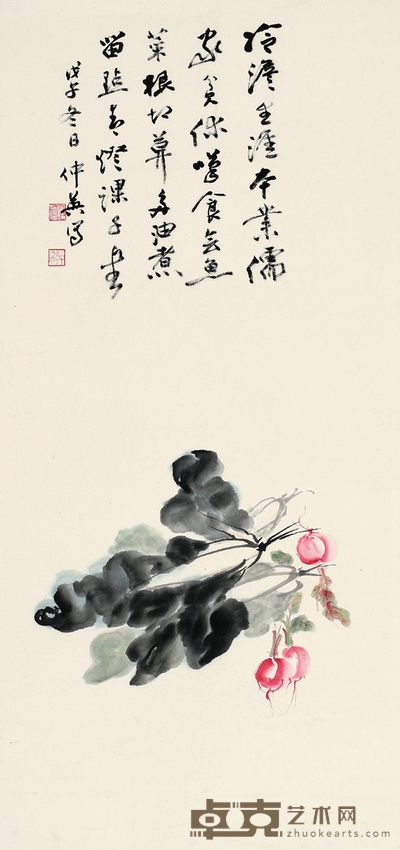 冷澹生涯本業儒
家貧休嘆食無魚
菜根切莫多油煮
留點青燈課子書
戊午冬日仲英寫
卓克艺术网
zhuokearts.com